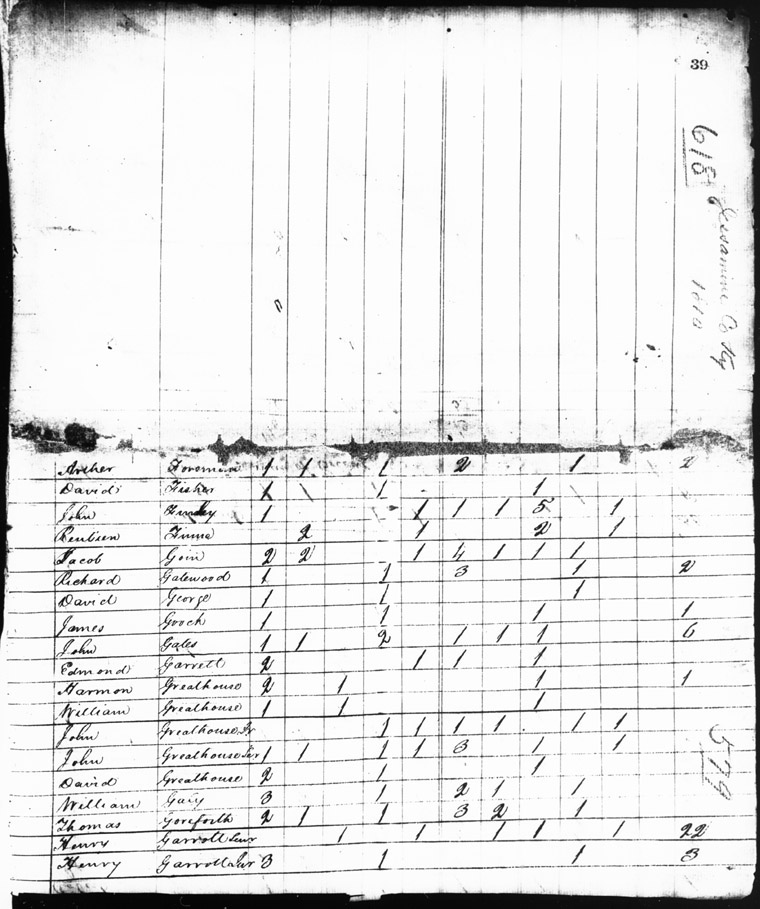 39
618 Jessamine Co Ky
1810
Archer Foreman 1 1 1 2 1 2
David Fisher 1 1 1
John 1 1 1 1 5 1
Reubien 2 1 2 1
Jacob Goin 2 2 1 4 1 1 1
Richard Galewood 1 1 3 1 2
David George 1 1 1
James Gooch 1 1 1 1
John Gates 1 1 2 1 1 1 6
Edmond Garrett 2 1 1 1
Harmon Greathouse 2 1 1 1
William Greathouse 1 1 1
John Greathouse Jr 1 1 1 1 1 1
John Greathouse Ser 1 1 1 1 3 1 1
David Greathouse 2 1 1
William 3 1 2 1 1
Thomas Goreforth 2 1 1 3 2 1
Henry Garrott Senr 1 1 1 1 1 22
Henry Garrott Jur 3 1 1 3
579